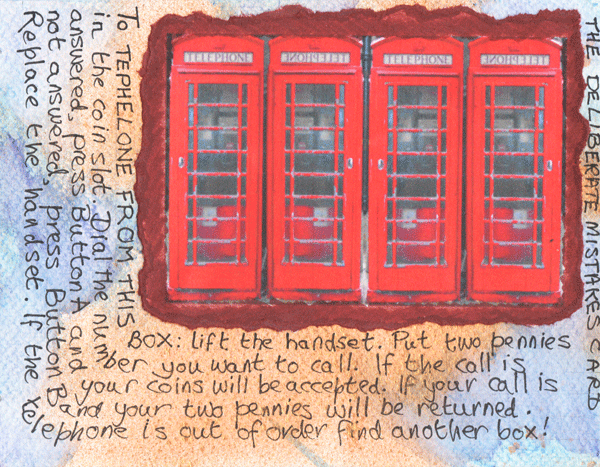 THE DELIBERATE MISTAKES CARD
TELEPHONE
TELEPHONE
TELEPHONE
TELEPHONE
To TEPHELONE FROM THIS BOX: lift the handset. Put two pennies
in the coin slot. Dial the number you want to call. If the call is
answered, press Button A and your coins will be accepted. If your call is
not answered, press Button B and your two pennies will be returned.
Replace the handset. If the telephone is out of order find another box!